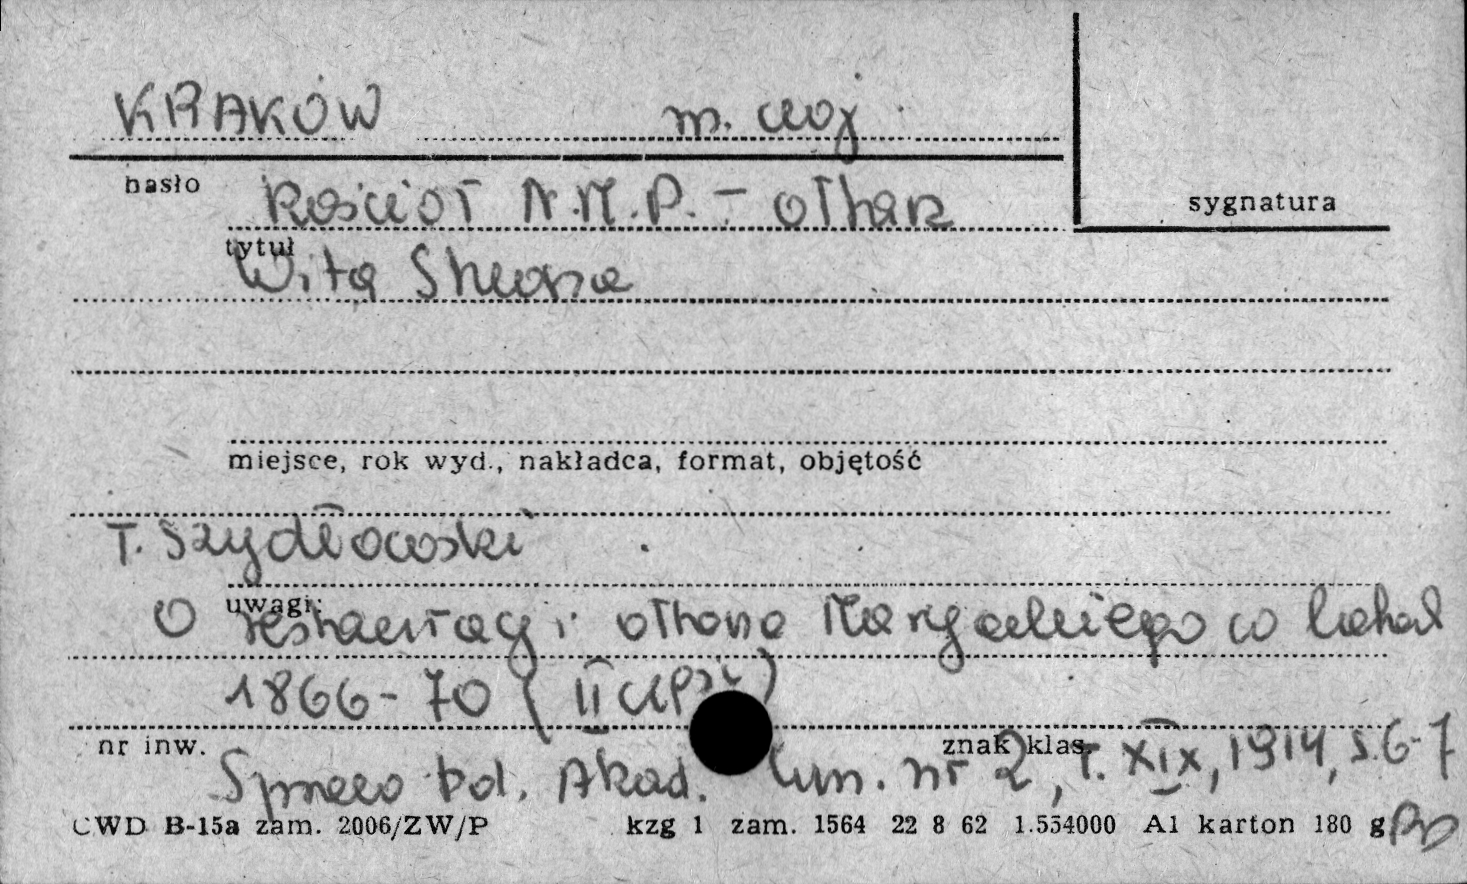 KRAKÓW m. woj.
hasło
Kościół N.M.P. - ołtarz
sygnatura
tytuł
Wita Stwosza
miejsce, rok wyd., nakładca, format, objętość
T. Szydłowski
uwagi:
O restauracji ołtarza Maryackiego w latach
1866-70 (II
nr inw.
znak klas.
Sprawo Pol. Akad. Um. nr 2, T. XIX, 1914, s. 6-7
CWD B-15a zam. 2006/ZW/P kzg 1 zam. 1564 22 8 62 1.554000 A1 karton 180 g